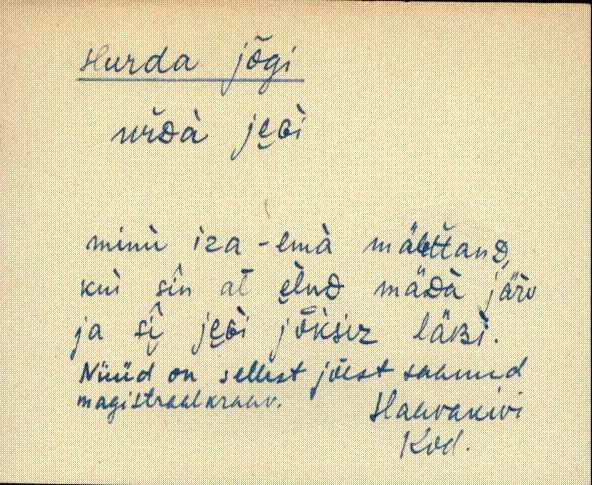 Hurda jõgi
minù iza-emà
kui sîn at e̮lnD mäDà järv
ja sî je̮Gi jõksiz läBi.
Nüüd on sellest jõest saanud
magistraalkraav. Haavakivi
Kod.